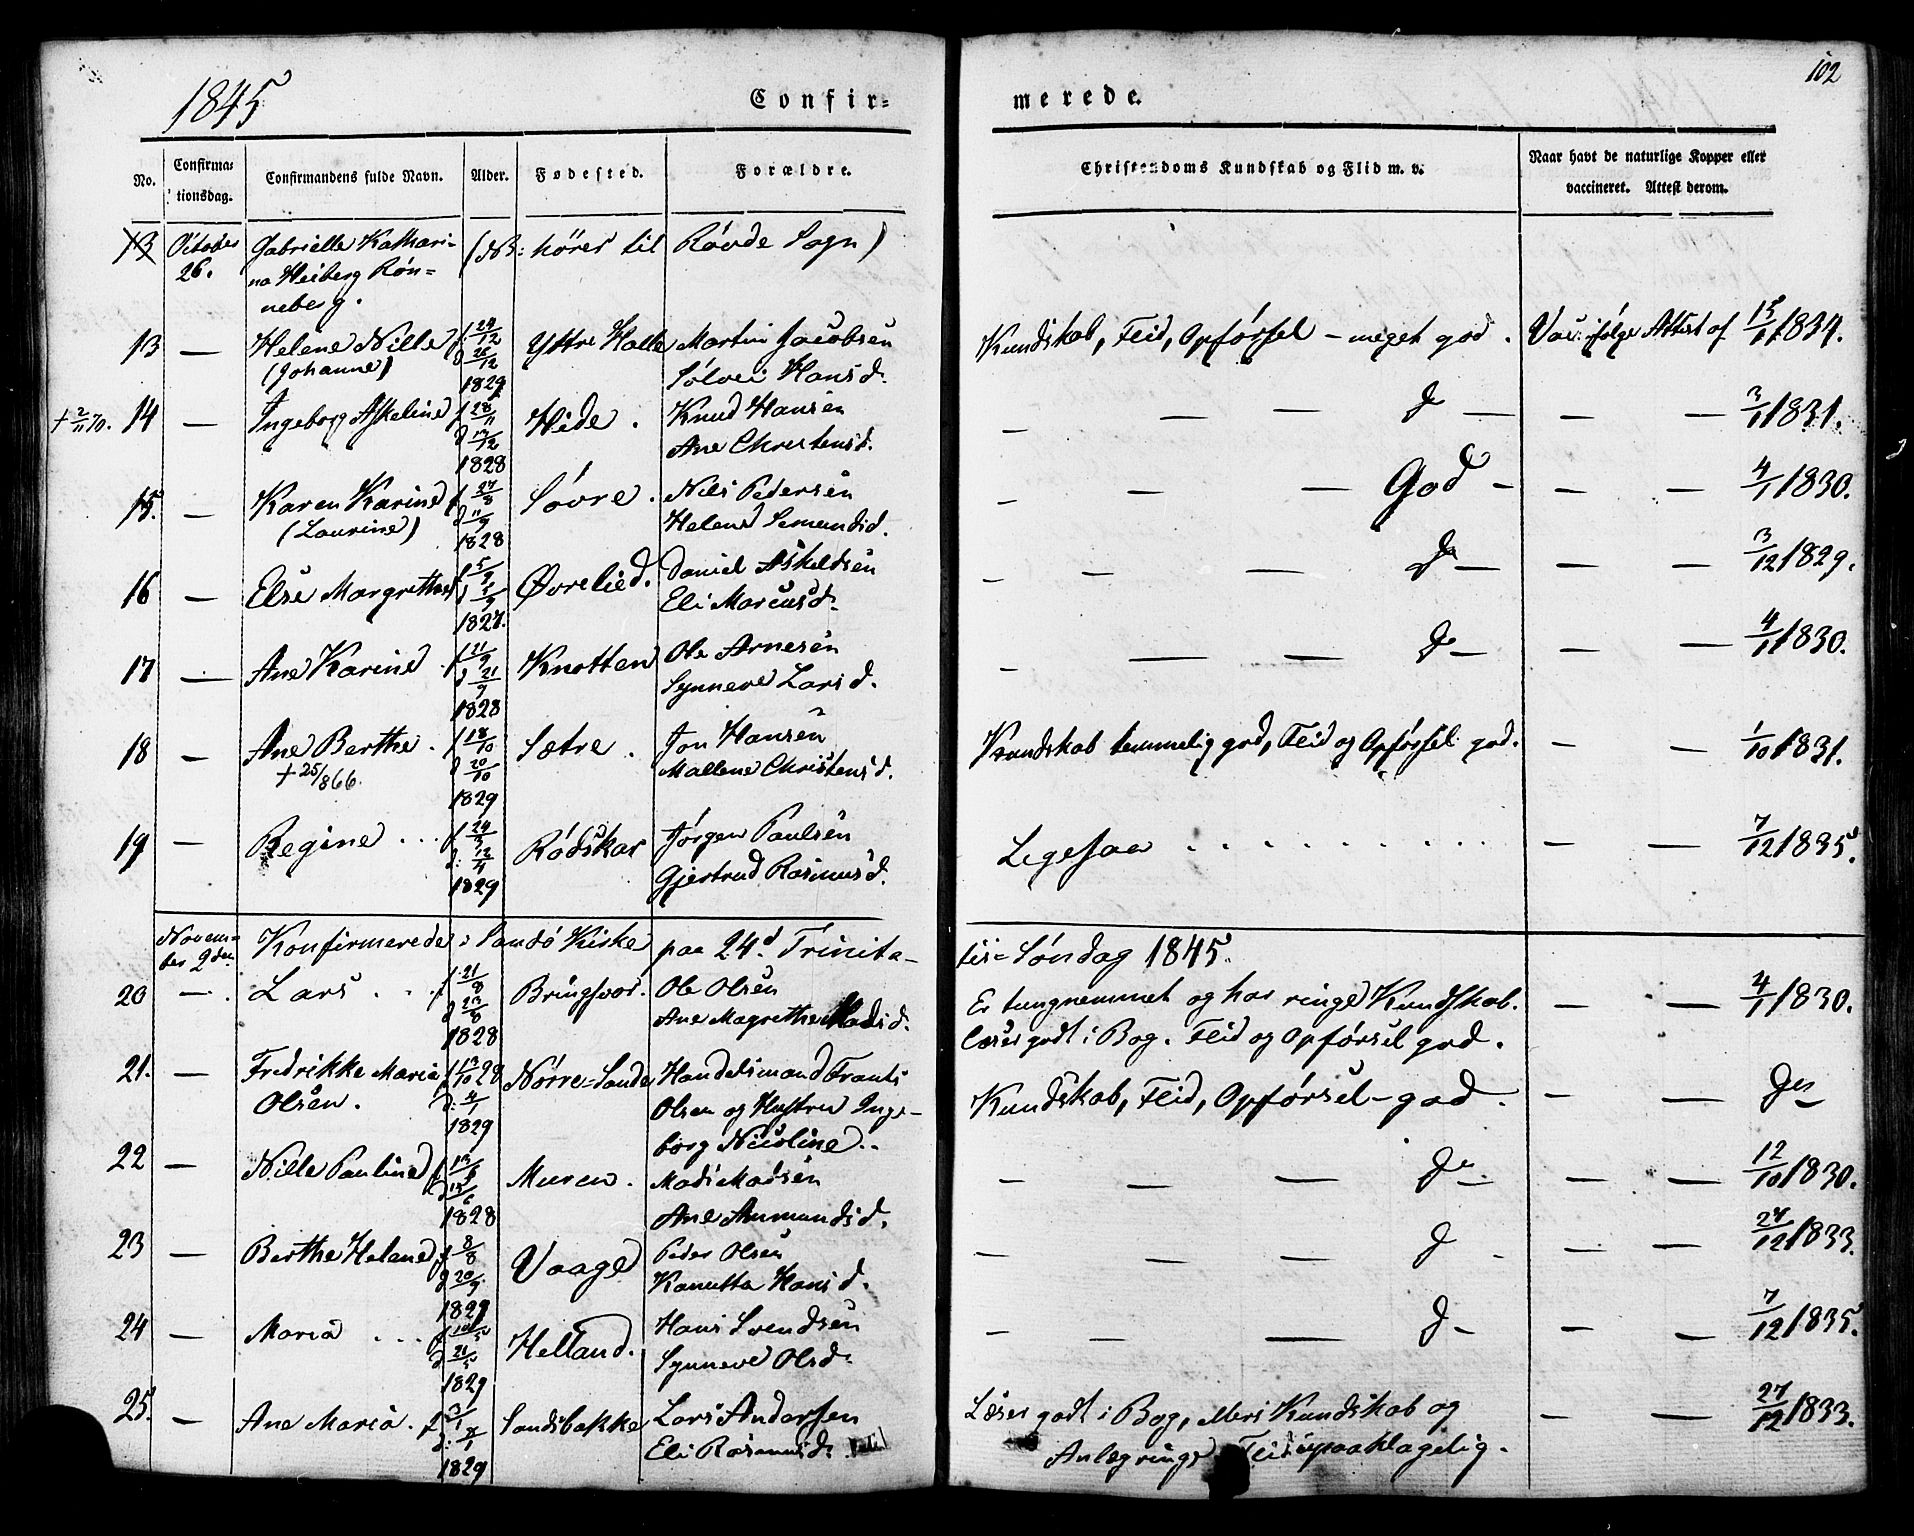 1845
Confir=
merede.
102
No.
Confirma=
tionsdag.
Confirmandens fulde Navn.
Alder.
Fødested.
Forældre.
Christendoms Kundskab og Flid m. v.
Naar havt de naturlige Kopper eller
vaccineret. Attest derom.
13 October Gabrielle Kathari- (NB: hörer til Róvde Sogn)
26. na Heiberg Rón=
neberg.
13 — Helene Nille f 24/12 Yttre Halle Martin Jacobsen Kundskab, Flid, Opførsel – meget god. Vac: ifølge Attest af 15/1 1834.
(Johanne) d 26/12 Sólvei Hansd.
1829
+ 2/11 70. 14 — Ingeborg Askeline f 28/11 Hide. Knud Hansen — — — do — — — 3/1 1831.
d 13/12 Ane Christensd.
1828
15. — Karen Karine f 27/8 Sóvre. Nils Pedersen — — — God — — — 4/1 1830.
(Laurine) d 11/9 Helene Semundsd.
1828
16 — Else Margrethe f 5/9 Øvrelied. Daniel Askeldsen — — — do — — — 3/12 1829.
d 9/9 Eli Marcusd.
1827.
17 — Ane Karine f 21/9 Knotten Ole Arnesen — — — do — — — 4/1 1830.
d 21/9 Synneve Larsd.
1828
18 — Ane Berthe. f 18/10 Sætre. Jon Hansen Kundskab temmelig god, Flid og Opførsel god. — — 1/10 1831.
+ 25/8 66. d 20/10 Mallene Christensd.
1829
19 — Regine . . . f 24/3 Ródskar Jørgen Paulsen Ligesaa . . . . . . . . . . — — 7/12 1835.
d: 12/4 Gjertrud Rasmusd.
1829
Novem= Konfirmerede i Sandó Kirke paa 24d. Trinita- tis= Søndag 1845.
ber 2den
20 — . Lars . . f 21/8 Bringsvor. Ole Olsen Er tungnemmet og har ringe Kundskab. — — 4/1 1830.
d 23/8 Ane Magrethe Madsd. Læser godt i Bog. Flid og Opførsel god.
1828
21. — Fredrikke Maria f 13/10 28 Nórre=Sande Handelsmand Frants Kundskab, Flid, Opførsel – god. — — do
Olsen. d: 4/1 Olsen og Hustru Inge-
1829 borg Nicoline.
22 — Nille Pauline f 13/6 Muren. Mads Madsen — — — do — — — 12/10 1830.
d 15/6 Ane Amundsd.
1828
23 — Berthe Helene f 8/8 Vaage Peder Olsen — — — do — — — 27/12 1833.
d 20/9 Kanutta Hansd.
1829
24 — Maria . . . f 10/5 Helland. Hans Svendsen — — — do — — — 7/12 1835.
d 21/5 Synneve Olsd.
1829
25. — Ane Maria. f 3/1 Sandsbakke Lars Andersen Læser godt i Bog, Men Kundskab og — — 27/12 1833.
d: 8/1 Eli Rasmusd. Anlæg ringe Flid upaaklagelig.
1829